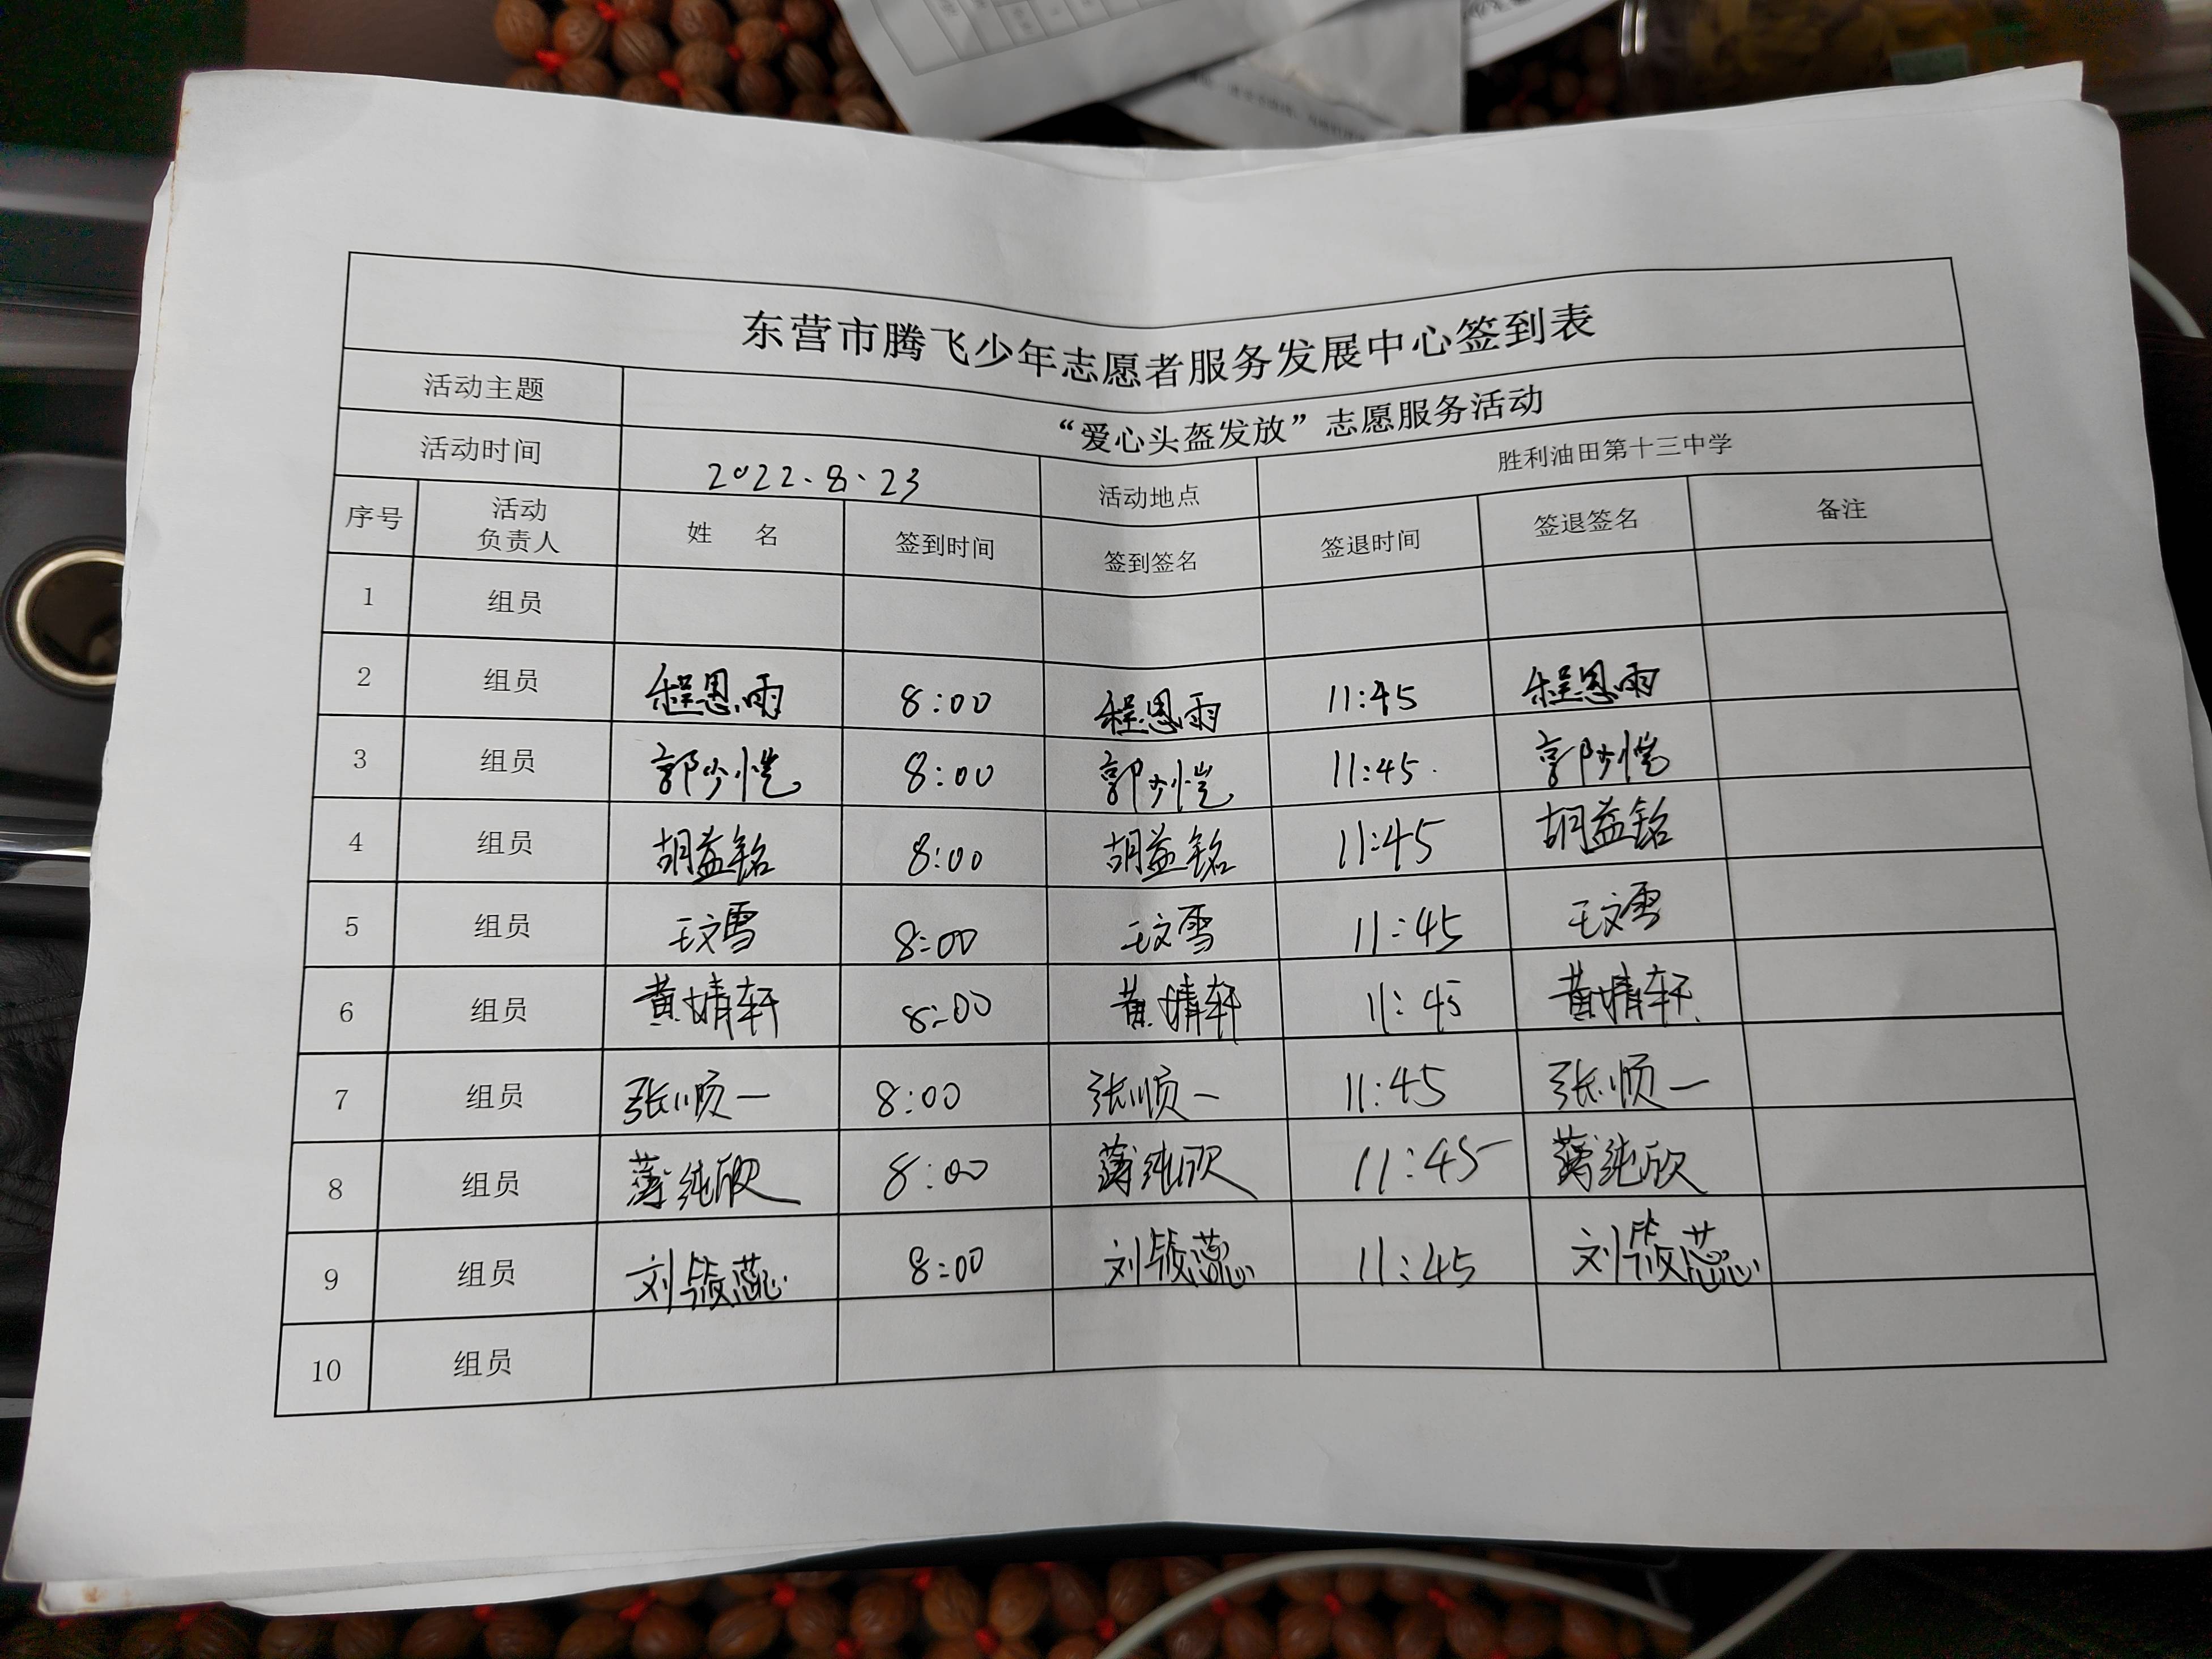 东营市腾飞少年志愿者服务发展中心签到表
活动主题 “爱心头盔发放”志愿服务活动
活动时间 2022.8.23 活动地点 胜利油田第十三中学
序号 活动负责人 姓 名 签到时间 签到签名 签退时间 签退签名 备注
1 组员
2 组员 程恩雨 8:00 程恩雨 11:45 程恩雨
3 组员 郭少恺 8:00 郭少恺 11:45 郭少恺
4 组员 胡益铭 8:00 胡益铭 11:45 胡益铭
5 组员 王文雪 8:00 王文雪 11:45 王文雪
6 组员 黄婧轩 8:00 黄婧轩 11:45 黄婧轩
7 组员 张顺一 8:00 张顺一 11:45 张顺一
8 组员 薄纯欣 8:00 薄纯欣 11:45 薄纯欣
9 组员 刘筱蕊 8:00 刘筱蕊 11:45 刘筱蕊
10 组员